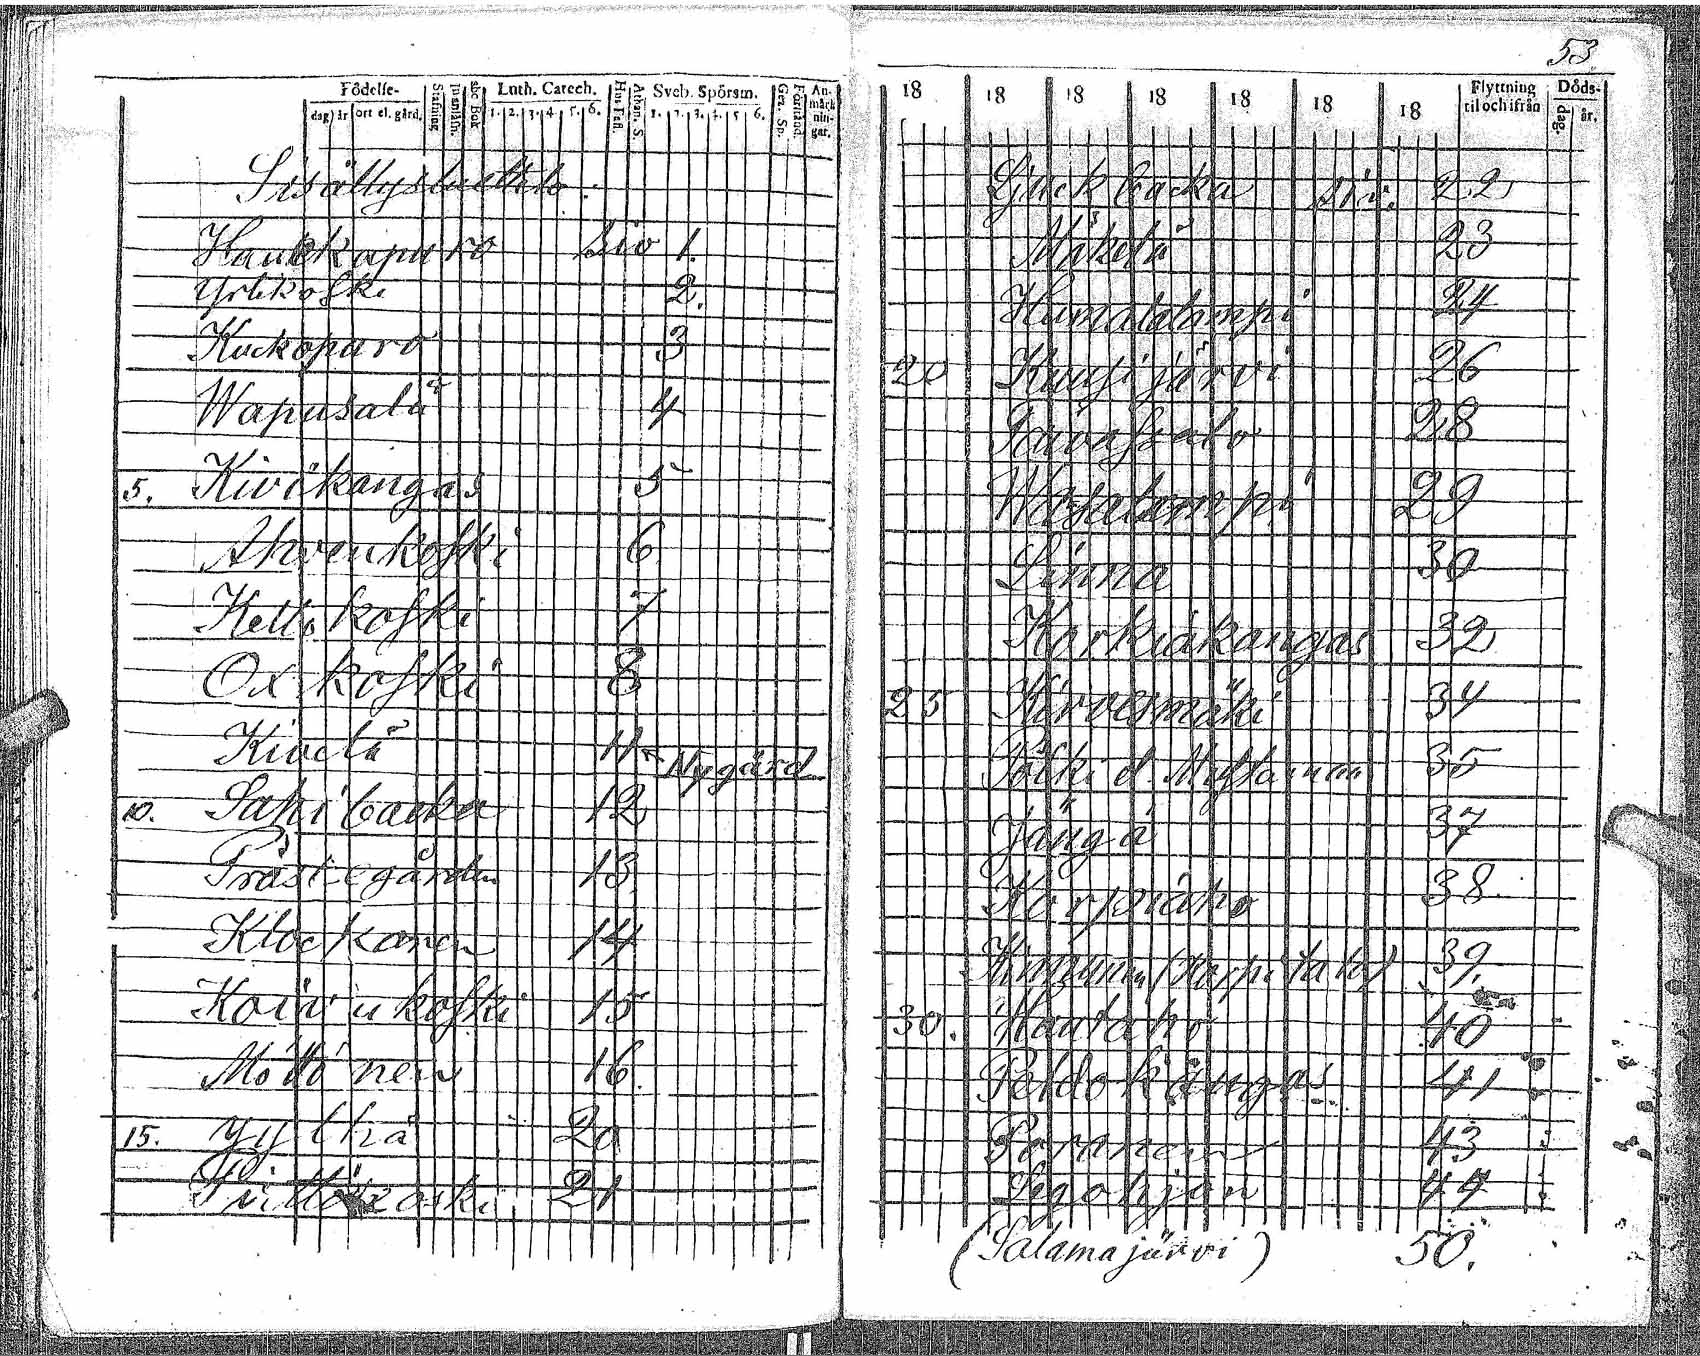 Födelse-
dag) år ort el. gård.
Stafning
abc Bok
Luth. Catech.
1. 2. 3. 4. 5. 6.
Hus Tafl.
Athan. S.
Sveb. Spörsm.
1. 2. 3. 4. 5. 6.
Ger. Sp.
Förstånd.
An-
märk
nin-
gar.
Sisällysluettelo.
Haukkapuro Siv 1.
Ylikoski 2.
Kuckopuro 3
Wapusalä 4
5. Kivikangas 5
Ahvenkoski 6
Kettokoski 7
Oxkoski 8
Kivelä 11 Nygård
10. Sahibacka 12
Prästegården 13
Klockaren 14
Koivukoski 15
Möttönen 16.
15. 20
21
53
18 18 18 18 18 18 18
Flyttning
til och ifrån
Döds-
dag. år.
Ljuckbacka siv. 22
Mäkelä 23
Humalalampi 24
20 Kuusijärvi 26
28
Wasalampi 29
Linna 30
Korkiakangas 32
25 Kirvesmäki 34
Pölki el. 35
Jängä 37
Korpiaho 38
(Korpitalo) 39.
30. Hautaho 40
Peldokangas 41
Poranen 43
44
(Salamajärvi) 50.